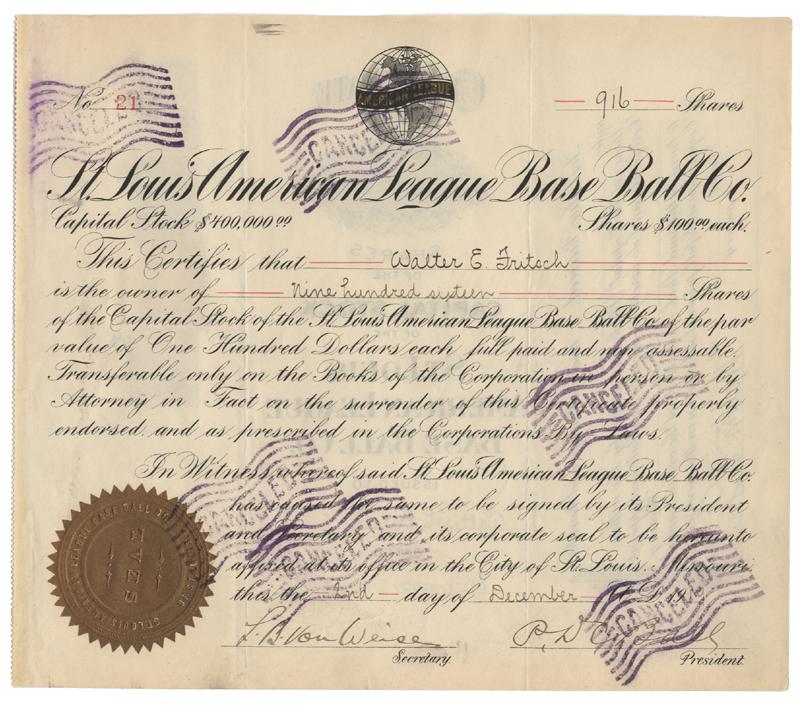 No. 21
AMERICAN LEAGUE
916 Shares
St. Louis American League Base Ball Co.
Capital Stock $400,000.00 Shares $100.00 each.
This Certifies that Walter E. Fritsch
is the owner of Nine hundred sixteen Shares
of the Capital Stock of the St. Louis American League Base Ball Co. of the par
value of One Hundred Dollars each full paid and non assessable.
Transferable only on the Books of the Corporation in person or by
Attorney in Fact on the surrender of this Certificate properly
endorsed and as prescribed in the Corporations By Laws.
In Witness whereof said St. Louis American League Base Ball Co.
has caused the same to be signed by its President
and Secretary and its corporate seal to be hereunto
affixed at its office in the City of St. Louis, Missouri
this the 2nd day of December
L. B. Von Weise
Secretary.
President.
SEAL
ST. LOUIS AMERICAN LEAGUE BASE BALL
CANCELLED
CANCELLED
CANCELLED
CANCELLED
CANCELLED
CANCELLED